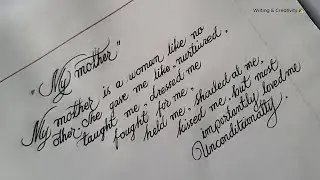 Writing & Creativity
"My mother"
My mother is a woman like no
other. She gave me life, nurtured,
taught me, dressed me
fought for me,
held me, shouted at me,
kissed me, but most
importantly, loved me
Unconditionatty.